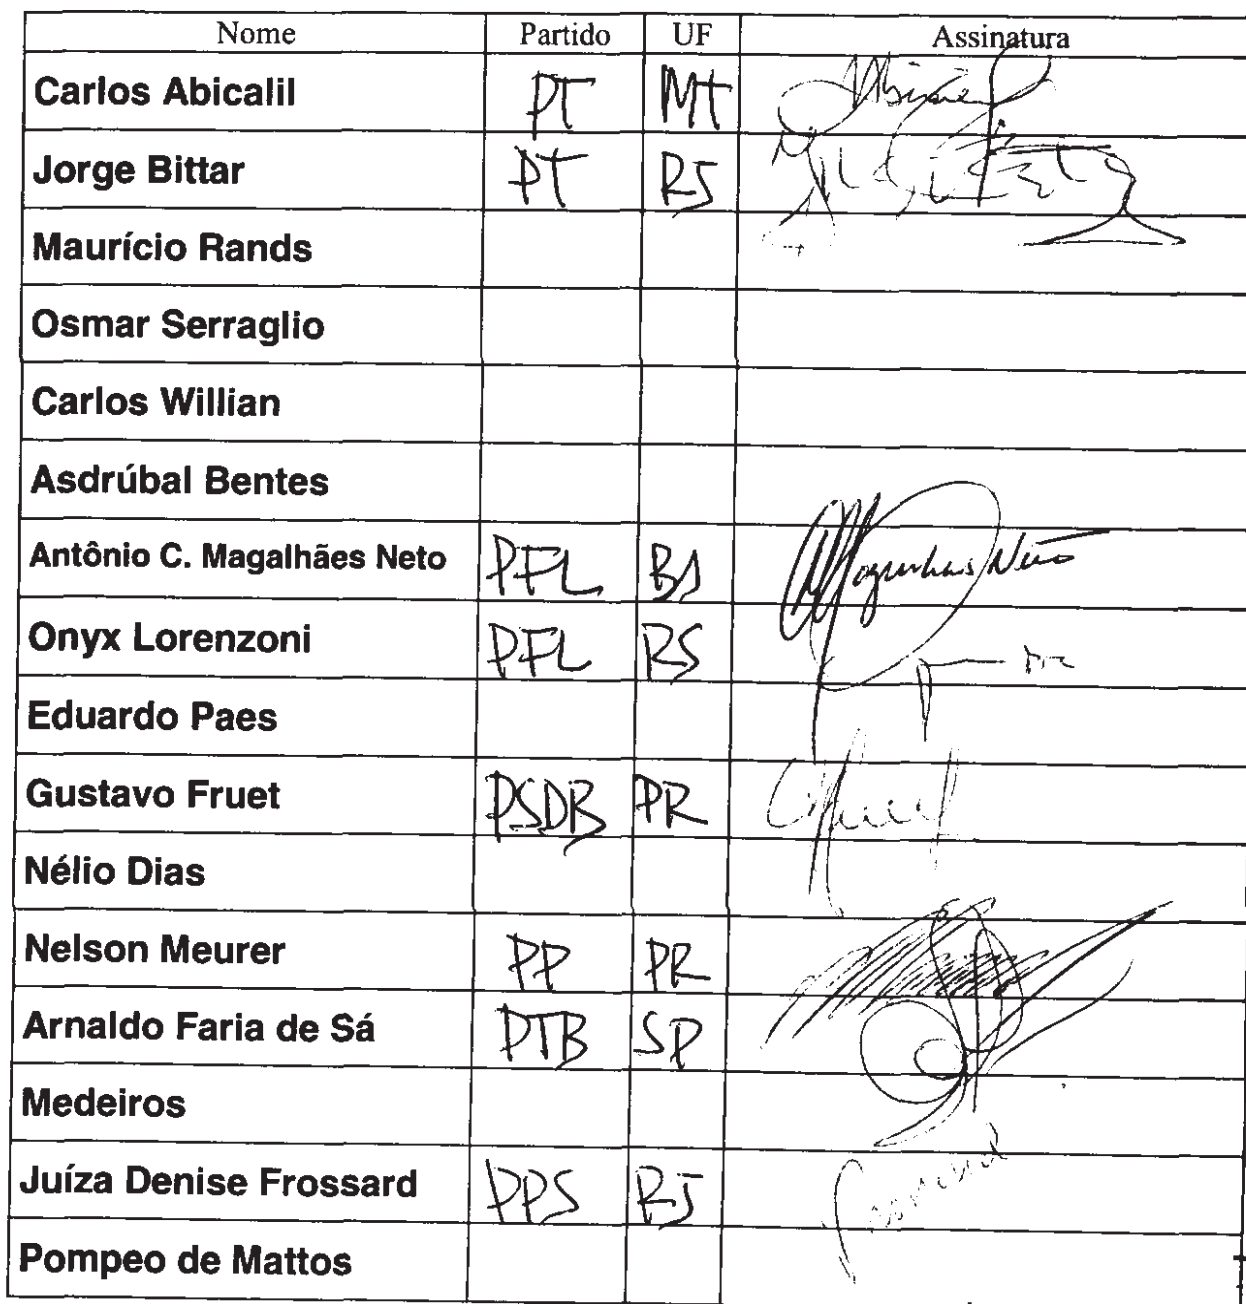 Nome Partido UF Assinatura
Carlos Abicalil PT MT
Jorge Bittar PT RJ
Maurício Rands
Osmar Serraglio
Carlos Willian
Asdrúbal Bentes
Antônio C. Magalhães Neto PFL BA Magalhães Neto
Onyx Lorenzoni PFL RS
Eduardo Paes
Gustavo Fruet PSDB PR
Nélio Dias
Nelson Meurer PP PR
Arnaldo Faria de Sá PTB SP
Medeiros
Juíza Denise Frossard PPS RJ
Pompeo de Mattos